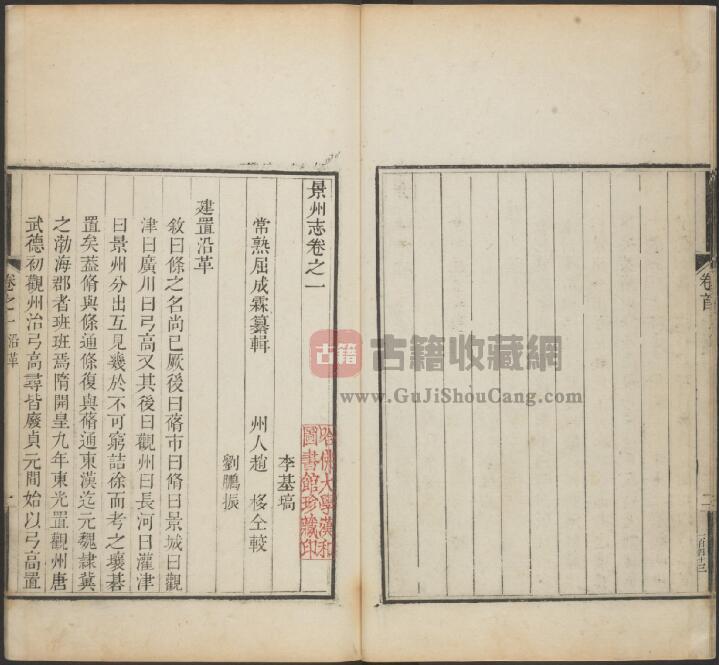 卷首
景州志卷之一
常熟屈成霖纂輯
李基塙
州人趙 栘仝較
劉鵬振
建置沿革
敘曰條之名尚已厥後曰脩市曰脩曰景城曰觀
津曰廣川曰弓高又其後曰觀州曰長河曰灌津
曰景州分出互見幾於不可窮詰徐而考之壤碁
置矣蓋脩與條通條復與脩通東漢迄元魏隷冀
之渤海郡者班班焉隋開皇九年東光置觀州唐
武德初觀州治弓高尋皆廢貞元間始以弓高置
卷之一 沿革
一
哈佛大學漢和
圖書館珍藏印
古籍
古籍收藏網
www.GuJiShouCang.com